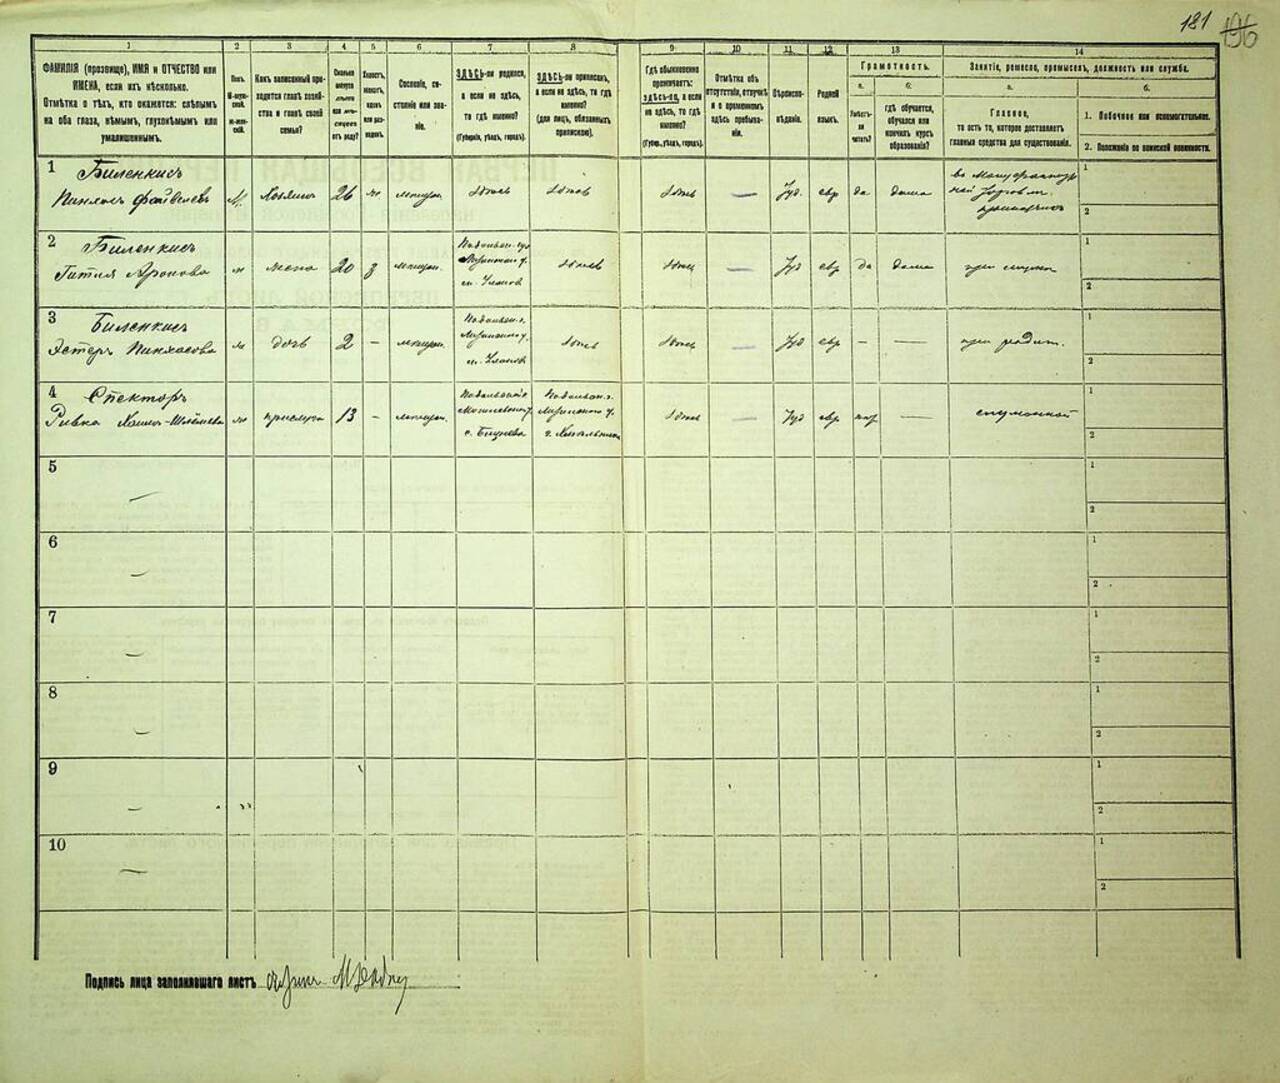 181 196
1 2 3 4 5 6 7 8 9 10 11 12 13 14
ФАМИЛІЯ (прозвище), ИМЯ и ОТЧЕСТВО или
ИМЕНА, если ихъ нѣсколько.
Отмѣтка о тѣхъ, кто окажется: слѣпымъ
на оба глаза, нѣмымъ, глухонѣмымъ или
умалишеннымъ.
Полъ.
М-муж-
ской.
Ж-жен-
скій.
Какъ записанный при-
ходится главѣ хозяй-
ства и главѣ своей
семьи?
Сколько
минуло
лѣтъ
или мѣ-
сяцевъ
отъ роду?
Холостъ,
женатъ,
вдовъ
или раз-
веденъ.
Сословіе, со-
стояніе или зва-
ніе.
ЗДѢСЬ-ли родился,
а если не здѣсь,
то гдѣ именно?
(Губернія, уѣздъ, городъ).
ЗДѢСЬ-ли приписанъ,
а если не здѣсь, то гдѣ
именно?
(для лицъ, обязанныхъ
припиской).
Гдѣ обыкновенно
проживаетъ:
здѣсь-ли, а если
не здѣсь, то гдѣ
именно?
(Губер., уѣздъ, городъ).
Отмѣтка объ
отсутствіи, отлучкѣ
и о временномъ
здѣсь пребыва-
ніи.
Вѣроиспо-
вѣданіе.
Родной
языкъ.
Грамотность.
а. б.
Умѣетъ-
ли
читать?
гдѣ обучается,
обучался или
кончилъ курсъ
образованія?
Занятіе, ремесло, промыселъ, должность или служба.
а. б.
Главное,
то есть то, которое доставляетъ
главныя средства для существованія.
1. Побочное или вспомогательное.
2. Положеніе по воинской повинности.
1 Биленкисъ
Пинхасъ Файвелевъ М. Хозяинъ 26 ж мѣщан. здѣсь здѣсь здѣсь — Іуд. евр да дома
1
2
2 Биленкисъ
Гитля Аронова ж жена 20 з мѣщан. здѣсь здѣсь — Іуд евр да дома при мужѣ
1
2
3 Биленкисъ
Эстеръ Пинхасова ж дочь 2 — мѣщан. здѣсь здѣсь — Іуд евр — — при родит.
1
2
4 Спекторъ
Ривка ж прислуга 13 — мѣщан. здѣсь — Іуд евр — 
1
2
5 —
1
2
6 —
1
2
7 —
1
2
8 —
1
2
9 —
1
2
10 —
1
2
Подпись лица заполнившаго листъ